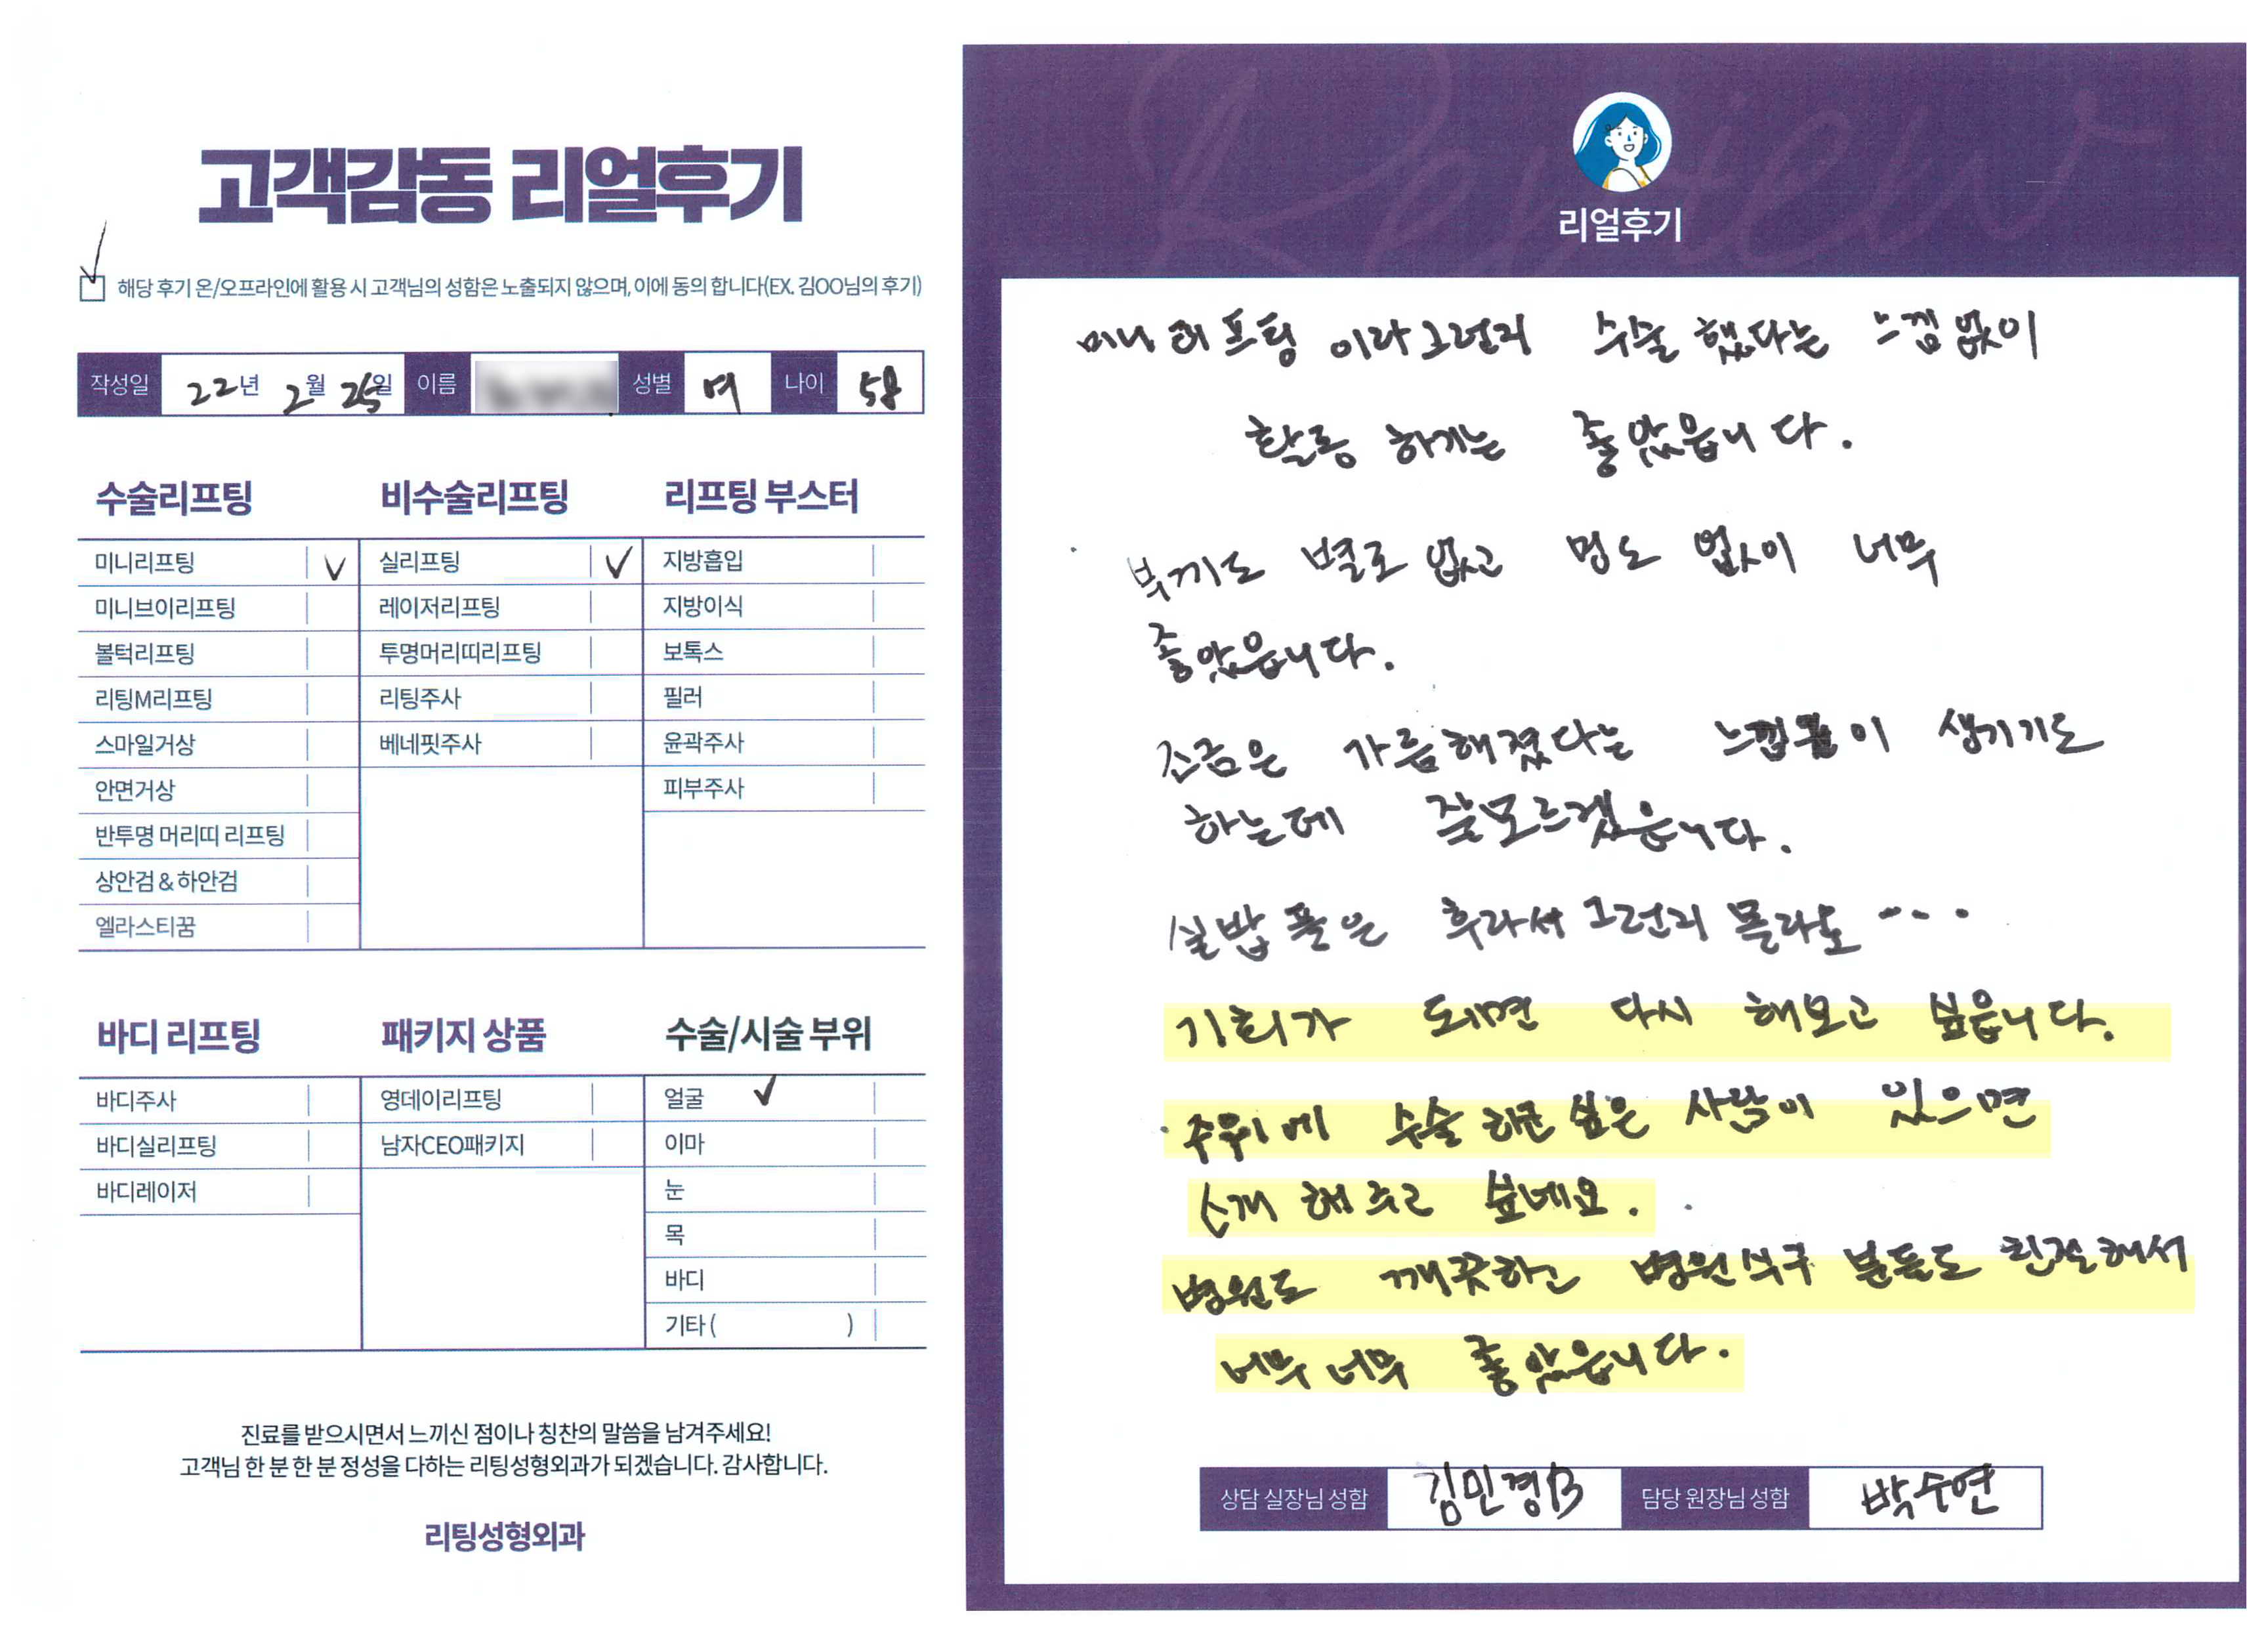 고객감동 리얼후기
해당 후기 온/오프라인에 활용 시 고객님의 성함은 노출되지 않으며, 이에 동의 합니다(EX. 김OO님의 후기)
작성일 22년 2월 25일 이름 성별 여 나이 58
수술리프팅 비수술리프팅 리프팅 부스터
미니리프팅 ✓ 실리프팅 ✓ 지방흡입
미니브이리프팅 레이저리프팅 지방이식
볼턱리프팅 투명머리띠리프팅 보톡스
리팅M리프팅 리팅주사 필러
스마일거상 베네핏주사 윤곽주사
안면거상 피부주사
반투명 머리띠 리프팅
상안검 & 하안검
엘라스티꿈
바디 리프팅 패키지 상품 수술/시술 부위
바디주사 영데이리프팅 얼굴 ✓
바디실리프팅 남자CEO패키지 이마
바디레이저 눈
목
바디
기타 ( )
진료를 받으시면서 느끼신 점이나 칭찬의 말씀을 남겨주세요!
고객님 한 분 한 분 정성을 다하는 리팅성형외과가 되겠습니다. 감사합니다.
리팅성형외과
Review
리얼후기
미니 리프팅 이라그런지 수술 했다는 느낌없이
활동 하기는 좋았읍니다.
부끼도 별로 없고 멍도 없이 너무
좋았읍니다.
조금은 갸름해졌다는 이 생기기도
하는데 잘모르겠읍니다.
실밥 푼은 후라서 그런지 몰라도 ...
기회가 되면 다시 해보고 싶읍니다.
주위에 수술 하고 싶은 사람이 있으면
소개 해주고 싶네요.
병원도 깨끗하고 병원식구 분들도 친절해서
너무 너무 좋았읍니다.
상담 실장님 성함 김민경B 담당 원장님 성함 박수연